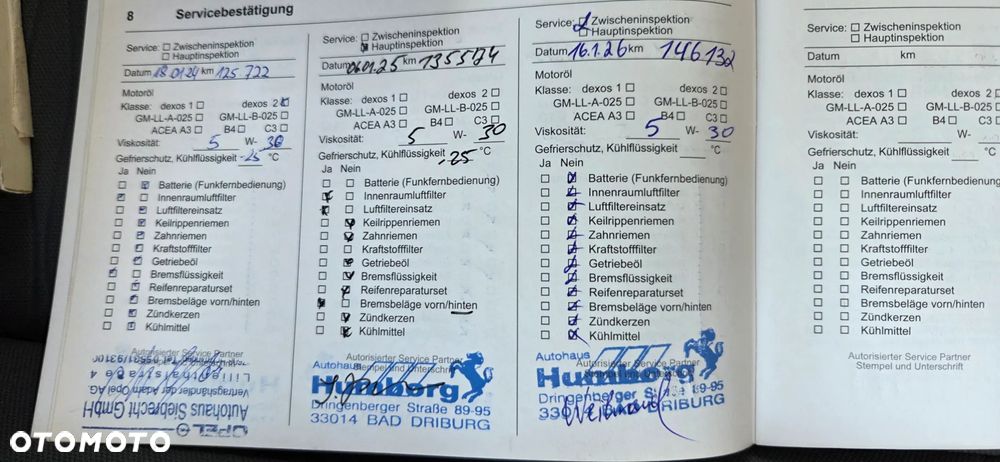 8 Servicebestätigung
Service: Zwischeninspektion
Hauptinspektion
Datum 18.01.24 km 125 722
Motoröl
Klasse: dexos 1 dexos 2
GM-LL-A-025 GM-LL-B-025
ACEA A3 B4 C3
Viskosität: 5 W- 30
Gefrierschutz, Kühlflüssigkeit -25 °C
Ja Nein
Batterie (Funkfernbedienung)
Innenraumluftfilter
Luftfiltereinsatz
Keilrippenriemen
Zahnriemen
Kraftstofffilter
Getriebeöl
Bremsflüssigkeit
Reifenreparaturset
Bremsbeläge vorn/hinten
Zündkerzen
Kühlmittel
Autorisierter Service Partner
Autohaus Siebrecht GmbH
Vertragshändler der Adam Opel AG
OPEL
Service: Zwischeninspektion
Hauptinspektion
Datum 06.01.25 km 135574
Motoröl
Klasse: dexos 1 dexos 2
GM-LL-A-025 GM-LL-B-025
ACEA A3 B4 C3
Viskosität: 5 W- 30
Gefrierschutz, Kühlflüssigkeit -25 °C
Ja Nein
Batterie (Funkfernbedienung)
Innenraumluftfilter
Luftfiltereinsatz
Keilrippenriemen
Zahnriemen
Kraftstofffilter
Getriebeöl
Bremsflüssigkeit
Reifenreparaturset
Bremsbeläge vorn/hinten
Zündkerzen
Kühlmittel
Autorisierter Service Partner
Stempel und Unterschrift
Autohaus
Humborg
Dringenberger Straße 89-95
33014 BAD DRIBURG
Service: Zwischeninspektion
Hauptinspektion
Datum 16.1.26 km 146132
Motoröl
Klasse: dexos 1 dexos 2
GM-LL-A-025 GM-LL-B-025
ACEA A3 B4 C3
Viskosität: 5 W- 30
Gefrierschutz, Kühlflüssigkeit °C
Ja Nein
Batterie (Funkfernbedienung)
Innenraumluftfilter
Luftfiltereinsatz
Keilrippenriemen
Zahnriemen
Kraftstofffilter
Getriebeöl
Bremsflüssigkeit
Reifenreparaturset
Bremsbeläge vorn/hinten
Zündkerzen
Kühlmittel
Autorisierter Service Partner
Autohaus
Humborg
Dringenberger 89-95
DRIBURG
Service: Zwischeninspektion
Hauptinspektion
Datum km
Motoröl
Klasse: dexos 1
GM-LL-A-025
ACEA A3 B4
Viskosität: W-
Gefrierschutz, Kühlflüssigkeit
Ja Nein
Batterie (Funkfernbedienung)
Innenraumluftfilter
Luftfiltereinsatz
Keilrippenriemen
Zahnriemen
Kraftstofffilter
Getriebeöl
Bremsflüssigkeit
Reifenreparaturset
Bremsbeläge vorn/hinten
Zündkerzen
Kühlmittel
Autorisierter Service Partner
Stempel und Unterschrift
OTOMOTO